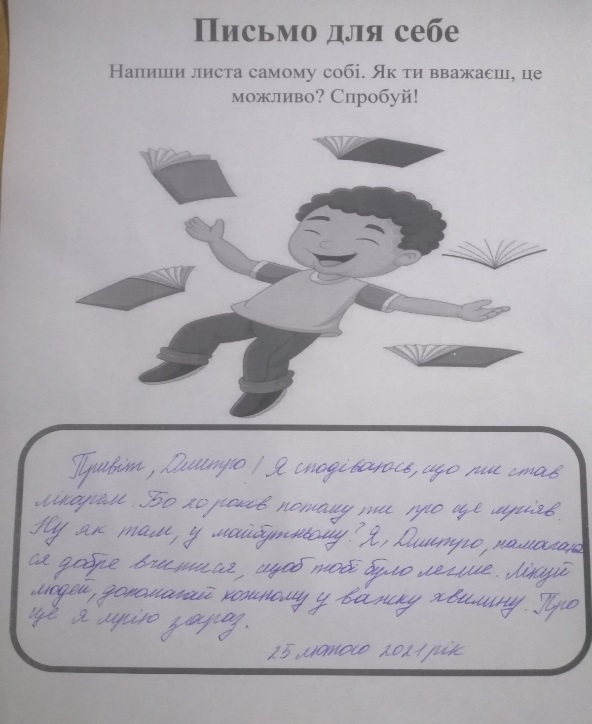 Письмо для себе
Напиши листа самому собі. Як ти вважаєш, це
можливо? Спробуй!
Привіт, Дмитро! Я сподіваюсь, що ти став
лікарем. Бо 20 років потому ти про це мріяв.
Ну як там, у майбутньому? Я, Дмитро, намагаю
ся добре вчитися, щоб тобі було легше. Лікуй
людей, допомагай кожному у важку хвилину. Про
це я мрію зараз.
25 лютого 2021 рік